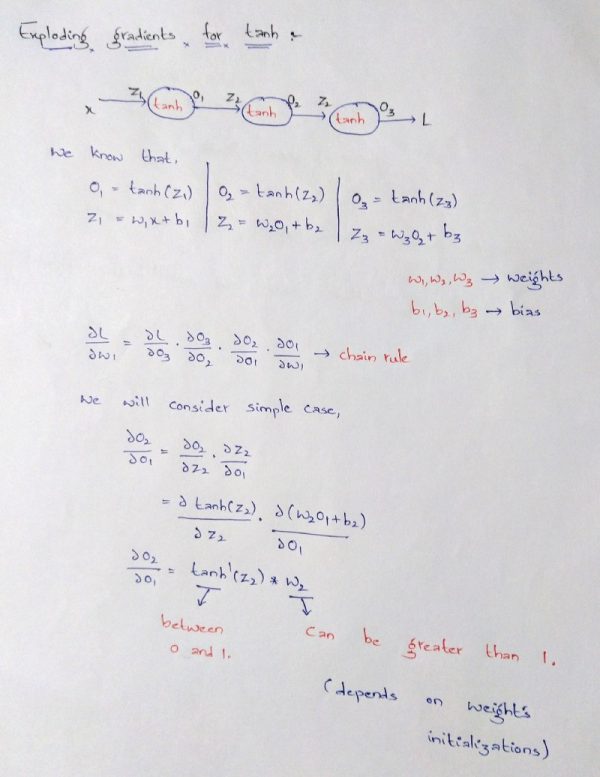 Exploding gradients for tanh :-
x Z₁ tanh O₁ Z₂ tanh O₂ Z₂ tanh O₃ L
We know that,
O₁ = tanh(Z₁) | O₂ = tanh(Z₂) | O₃ = tanh(Z₃)
Z₁ = w₁x + b₁ | Z₂ = w₂O₁ + b₂ | Z₃ = w₃O₂ + b₃
w₁, w₂, w₃ → weights
b₁, b₂, b₃ → bias
∂L/∂w₁ = ∂L/∂O₃ · ∂O₃/∂O₂ · ∂O₂/∂O₁ · ∂O₁/∂w₁ → chain rule
We will consider simple case,
∂O₂/∂O₁ = ∂O₂/∂Z₂ · ∂Z₂/∂O₁
= ∂ tanh(Z₂)/∂Z₂ · ∂(w₂O₁ + b₂)/∂O₁
∂O₂/∂O₁ = tanh'(Z₂) * w₂
between can be greater than 1.
0 and 1.
(depends on weight's
initializations)